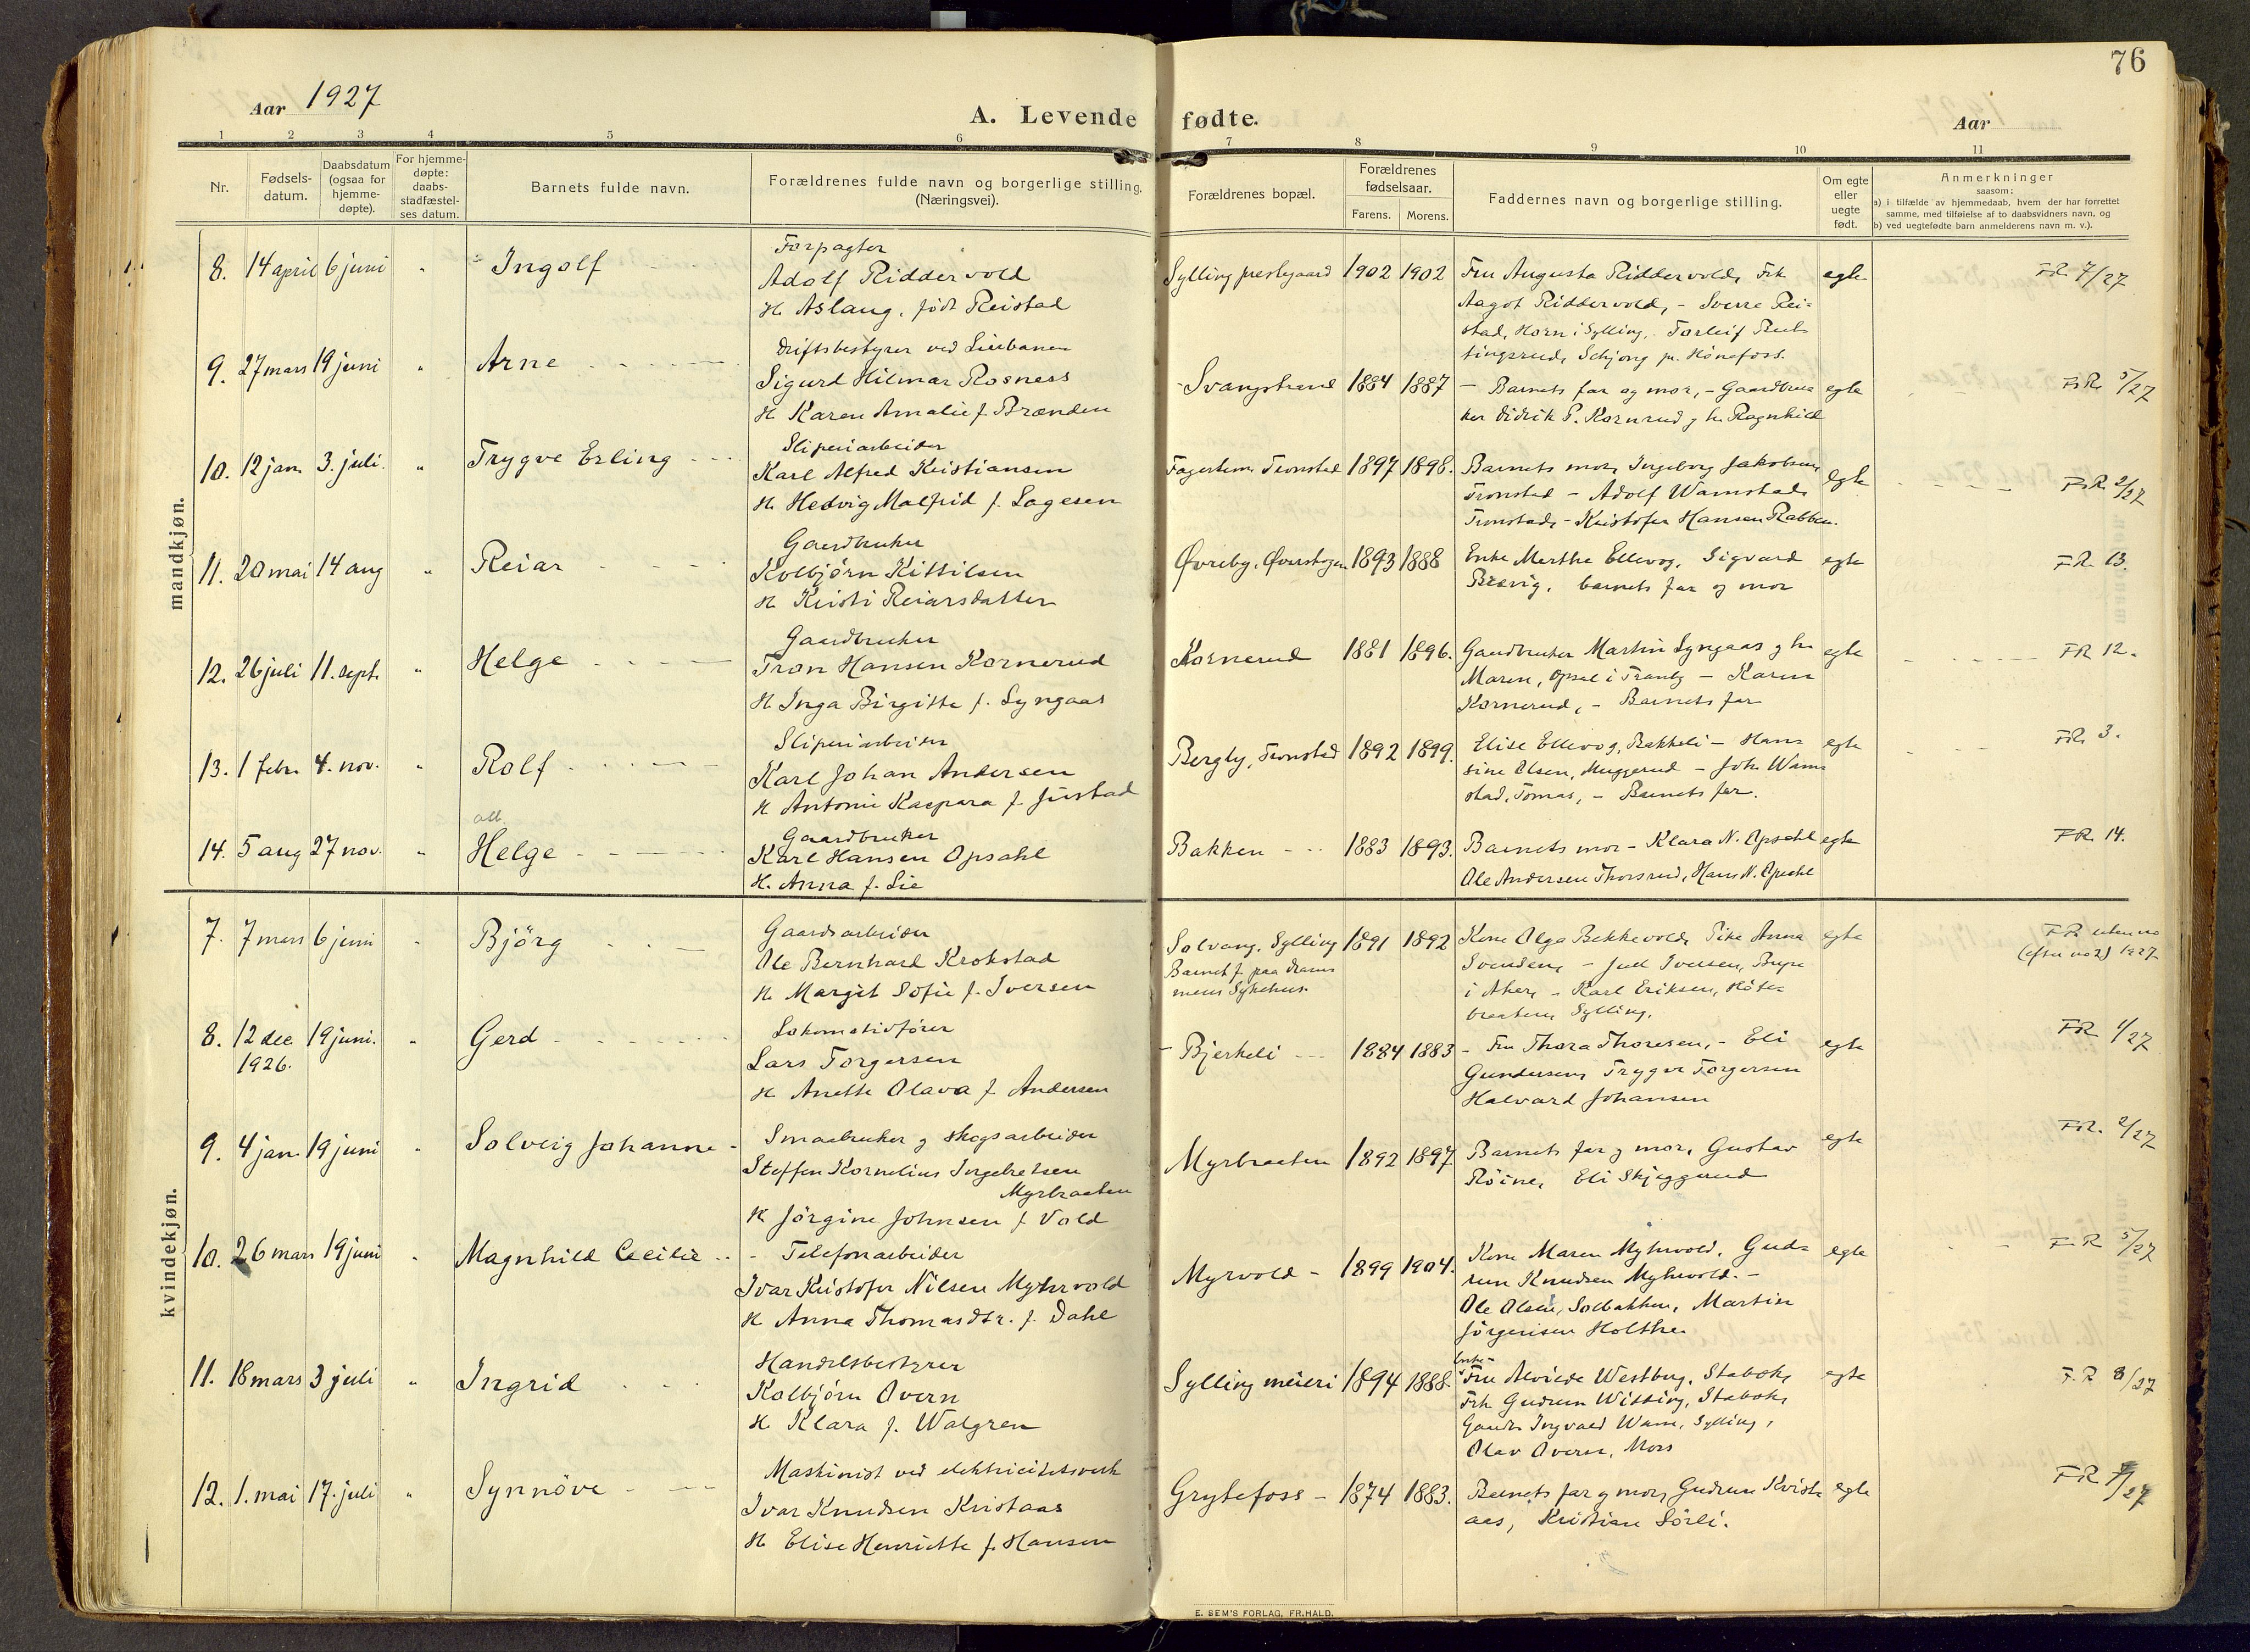 76
Aar 1927
A. Levende fødte.
Aar
1 2 3 4 5 6 7 8 9 10 11
Nr.
Fødsels-
datum.
Daabsdatum
(ogsaa for
hjemme-
døpte).
For hjemme-
døpte:
daabs-
stadfæstel-
ses datum.
Barnets fulde navn.
Forældrenes fulde navn og borgerlige stilling.
(Næringsvei).
Forældrenes bopæl.
Forældrenes
fødselsaar.
Farens. Morens.
Faddernes navn og borgerlige stilling.
Om egte
eller
uegte
født.
Anmerkninger
saasom:
a) i tilfælde av hjemmedaab, hvem der har forrettet
samme, med tilføielse af to daabsvidners navn, og
b) ved uegtefødte barn anmelderens navn m. v.).
mandkjøn.
8. 14 april 6 juni " Ingolf
Forpagter
Adolf Riddervold
H. Aslaug, født Reistad
Sylling prestegaard 1902 1902
Fru Augusta Riddervold, Frk
Aagot Riddervold, - Sverre Rei-
stad, Horn i Sylling, Torleif
Schjong pr. Hönefoss.
egte
FR. 7/27
9. 27 mars 19 juni " Arne
Driftsbestyrer ved Lierbanen
Sigurd Hilmar Rosness
H Karen Amalie f. Brænden
Svangstrand 1884 1887
- Barnets far og mor, - Gaardbru
ker Didrik P. Kornrud og h. Ragnhild
egte
FR. 5/27
10. 12 jan. 3. juli. " Trygve Erling
Sliperiarbeider
Karl Alfred Kristiansen
H. Hedvig Malfrid f. Lagesen
Fagerheim Tronstad 1897 1898.
Barnets mor, Ingeborg Jakobsen,
Tronstad - Adolf Wamstad,
Tronstad, - Kristofer Hansen Rabben.
egte
F.R. 2/27
11. 20 mai 14 aug " Reiar
Gaardbruker
Kolbjörn Kittilsen
H. Kristi Reiarsdatter
Øvreby, Øverskogen 1893 1888
Enke Marthe Ellevog, Sigvard
barnets far og mor
egte
FR. 13.
12. 26 juli 11. sept. " Helge
Gaardbruker
Tron Hansen Kornerud
H Inga Birgitte f. Lyngaas
Kornerud 1881 1896.
Gaardbruker Martin Lyngaas og h.
Maren, Opsal i Tranby - Karen
Kornerud, - Barnets far
egte
FR 12.
13. 1 febr. 4. nov. " Rolf
Sliperiarbeider
Karl Johan Andersen
H Antonie Kaspara f. Justad
Bergly, Tronstad 1892 1899.
Elise Ellevog, Bakkeli - Han-
sine Olsen, Muggerud - Joh. Wam-
stad, Tomas, - Barnets far.
egte
FR. 3.
14. 5 aug 27 nov. " Helge
Gaardbruker
Karl Hansen Opsahl
H. Anna f. Lie
Bakken 1883 1893.
Barnets mor - Klara N. Opsahl
Ole Andersen Thorsrud, Hans N. Opsahl
egte
FR. 14.
kvindekjøn.
7. 7 mars 6 juni " Björg
Gaardsarbeider
Ole Bernhard Krokstad
H. Margit Sofie f. Iversen
Solvang, Sylling 1891 1892
Barnet f. paa Dram-
mens Sykehus.
Kone Olga Bekkevold, Pike Anna
Svendsen, - Juel Iversen,
i Aker, - Karl Eriksen,
Sylling.
egte
FR uten no
(efter no 2) 1927
8. 12 dec 19 juni. " Gerd
1926.
Lokomotivfører
Lars Torgersen
H. Anette Olava f. Andersen
- Bjerkeli 1884 1883
- Fru Thora Thoresen, - Eli
Gundersen, Trygve Torgersen
Halvard Johansen
egte
FR 1/27
9. 4 jan 19 juni " Solveig Johanne
Smaabruker og skogsarbeider
Steffen Kornelius Ingebretsen
Myrbraaten
H Jörgine Johnsen f. Vold
Myrbraaten 1892 1897
Barnets far og mor, Gustav
Röine, Eli Skjæggerud
egte
FR. 2/27
10. 26 mars 19 juni " Magnhild Cecilie
- Telefonarbeider
Ivar Kristofer Nilsen Myhrvold
H Anna Thomasdtr. f. Dahl
Myrvold - 1899 1904.
Kone Maren Myhrvold, Gud-
run Knudsen Myhrvold. -
Ole Olsen, Solbakken, Martin
Jörgensen Holthe.
egte
FR 5/27
11. 18 mars 3 juli " Ingrid
Handelsbestyrer
Kolbjörn Overn
H Klara f. Walgren
Sylling meieri 1894 1888.
Enke-
Fru Alvilde Westbug, Stabæk,
Frk Gudrun Wissing, Stabæk,
Gaardb. Ingvald Wam, Sylling,
Olav Overn, Moss
egte
F.R 8/27
12. 1. mai 17. juli " Synnöve
Maskinist ved elektricitetsverk
Ivar Knudsen Kristaas
H. Elise Henriette f. Hansen
Grytefoss - 1874 1883.
Barnets far og mor, Gudrun Krist-
aas, Kristian Sörli.
egte
FR /27
E. SEM'S FORLAG, FR.HALD.